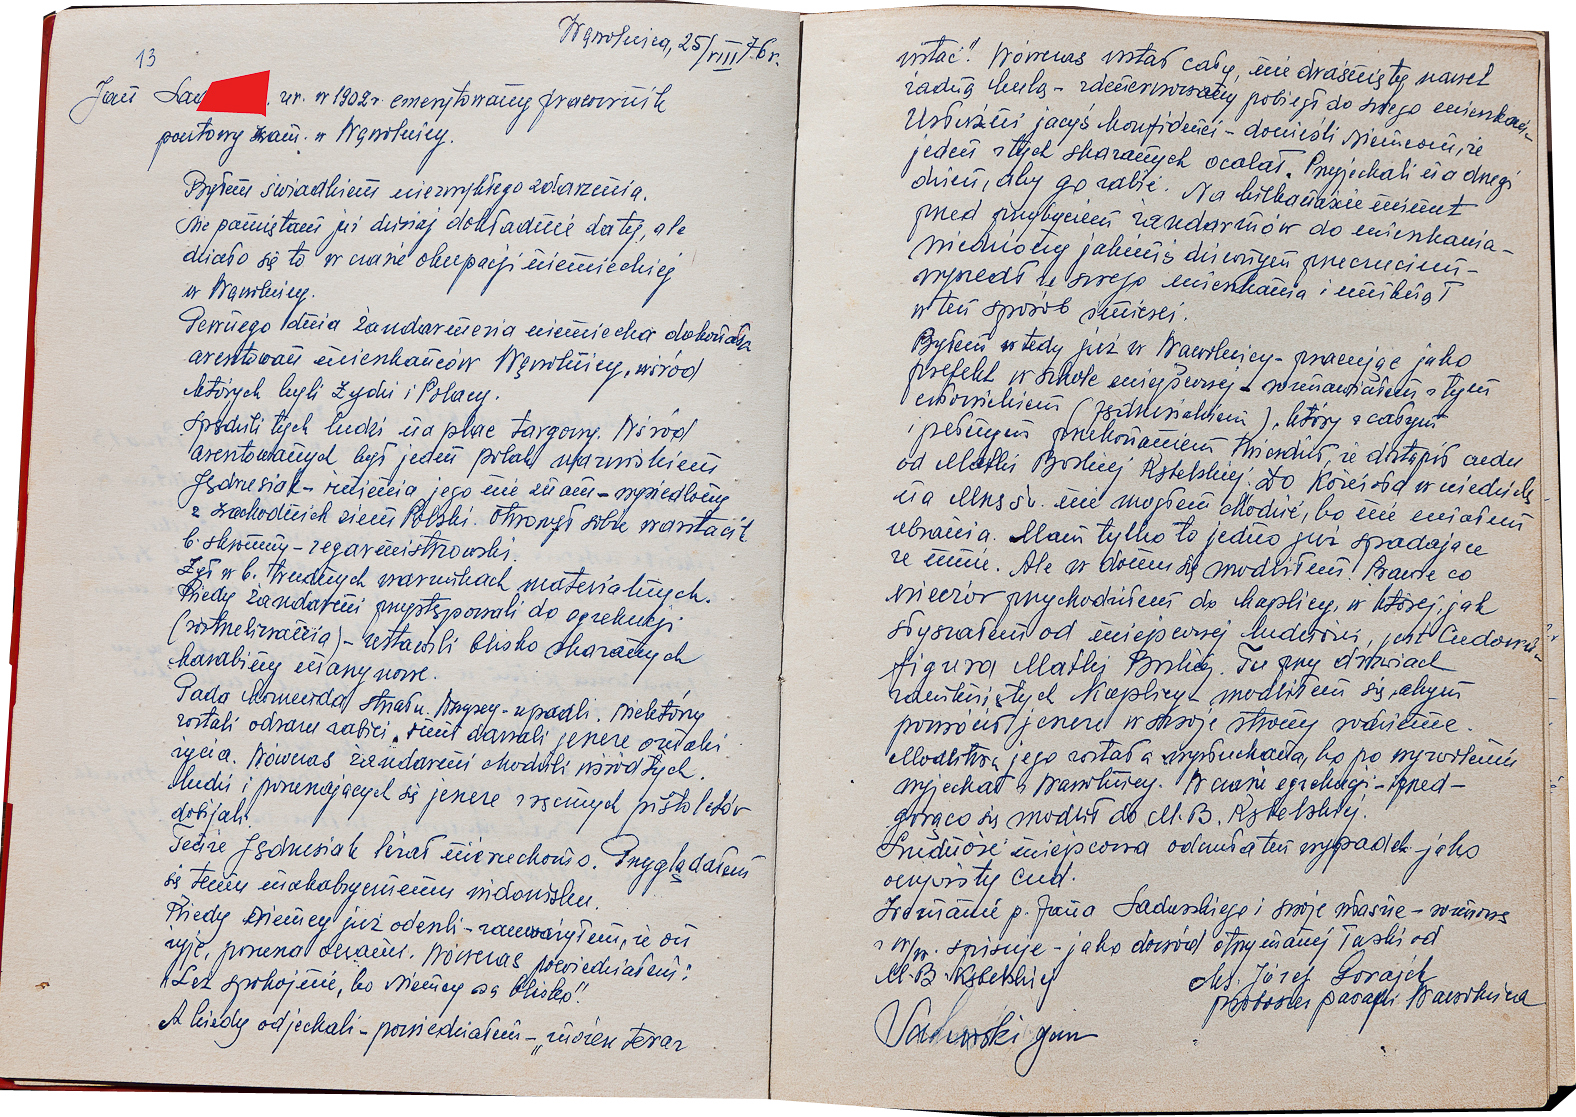 Wąwolnica, 25/VIII 76 r.
13
Jan Sad . ur. w 1902 r. emerytowany pracownik
pocztowy zam. w Wąwolnicy.
Byłem świadkiem niezwykłego zdarzenia.
Nie pamiętam już dzisiaj dokładnie daty, ale
działo się to w czasie okupacji niemieckiej
w Wąwolnicy.
Pewnego dnia żandarmeria niemiecka dokonała
aresztowań mieszkańców Wąwolnicy, wśród
których byli Żydzi i Polacy.
Spędzili tych ludzi na plac targowy. Wśród
aresztowanych był jeden polak nazwiskiem
Jędrusiak - imienia jego nie znam - wysiedlony
z zachodnich ziem Polski. Otworzył sobie warsztacik
b. skromny - zegarmistrzowski.
Żył w b. trudnych warunkach materialnych.
Kiedy żandarmi przystępowali do egzekucji
(rozstrzeliwania) - ustawili blisko skazanych
karabiny maszynowe.
Pada komenda strzału. Wszyscy - upadli. Niektórzy
zostali odrazu zabici, inni dawali jeszcze oznaki
życia. Wówczas żandarmi chodzili wśród tych
ludzi i poruszających się jeszcze z ręcznych pistoletów
dobijali.
Tenże Jędrusiak leżał nieruchomo. Przyglądałem
się temu makabrycznemu widowisku.
Kiedy Niemcy już odeszli - zauważyłem, że on
żyje, porusza oczami. Wówczas powiedziałem:
"Leż spokojnie, bo Niemcy są blisko".
A kiedy odjechali - powiedziałem - "możesz teraz
wstać". Wówczas wstał cały, nie draśnięty nawet
żadną kulą - zdenerwowany pobiegł do swego mieszkania.
Usłużni jacyś konfidenci - donieśli Niemcom, że
jeden z tych skazanych ocalał. Przyjechali na drugi
dzień, aby go zabić. Na kilkanaście minut
przed przybyciem żandarmów do mieszkania -
wiedziony jakimś dziwnym przeczuciem -
wyszedł ze swego mieszkania i uniknął
w ten sposób śmierci.
Byłem wtedy już w Wąwolnicy - pracując jako
prefekt w szkole miejscowej - rozmawiałem z tym
człowiekiem (Jędrusiakiem), który z całym
i pełnym przekonaniem twierdził, że dostąpił cudu
od Matki Boskiej Kębelskiej. Do Kościoła w niedzielę
na Mszę św. nie mogłem chodzić, bo nie miałem
ubrania. Mam tylko to jedno już spadające
ze mnie. Ale w domu się modliłem. Prawie co
wieczór przychodziłem do kaplicy, w której, jak
słyszałem od miejscowej ludności, jest Cudowna
figura Matki Boskiej. Tu przy drzwiach
zamkniętych Kaplicy - modliłem się, abym
powrócił jeszcze w swoje strony rodzinne.
Modlitwa jego została wysłuchana, bo po wyzwoleniu
wyjechał z Wąwolnicy. W czasie egzekucji - przed -
gorąco się modlił do M. B. Kębelskiej.
Ludność miejscowa odczuła ten wypadek jako
oczywisty cud.
Zeznanie p. Jana Sadurskiego i swoje własne - rozmowę
z w/w. spisuję - jako dowód otrzymanej łaski od
M. B. Kębelskiej
Ks. Józef Gorajek
proboszcz parafii Wąwolnica
Sadurski Jan